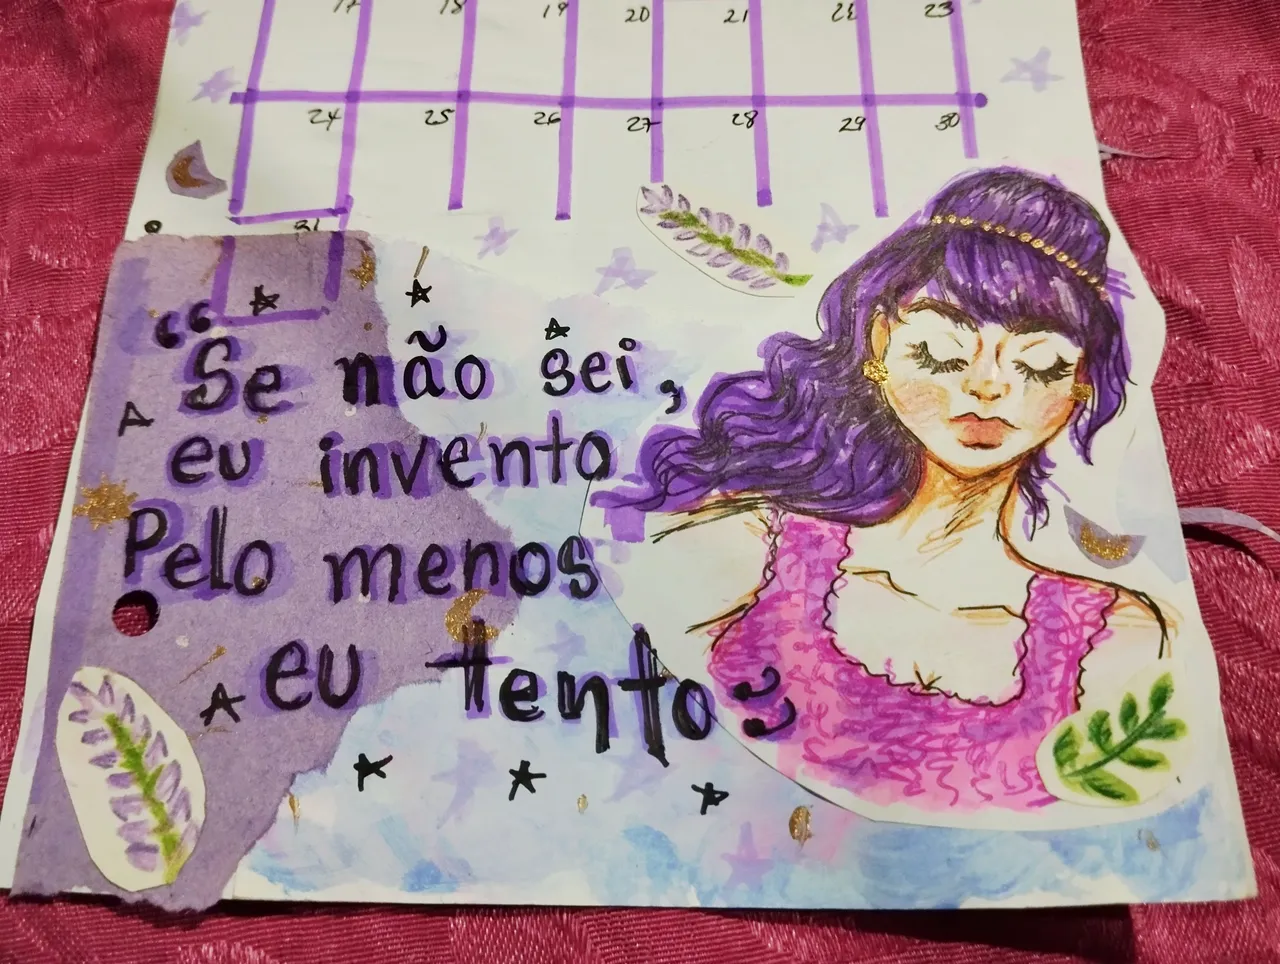 17 18 19 20 21 22 23
24 25 26 27 28 29 30
31
“Se não sei,
eu invento
Pelo menos
eu tento”